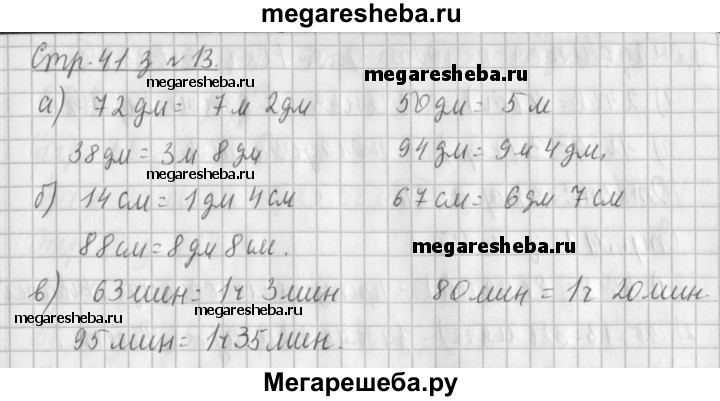 megaresheba.ru
Стр. 41 з №13.
megaresheba.ru megaresheba.ru
а) 72 дм = 7 м 2 дм 50 дм = 5 м
38 дм = 3 м 8 дм 94 дм = 9 м 4 дм.
megaresheba.ru megaresheba.ru
б) 14 см = 1 дм 4 см 67 см = 6 дм 7 см
88 см = 8 дм 8 см. megaresheba.ru
в) 63 мин = 1 ч 3 мин 80 мин = 1 ч 20 мин.
megaresheba.ru megaresheba.ru
95 мин = 1 ч 35 мин.
Мегарешеба.ру